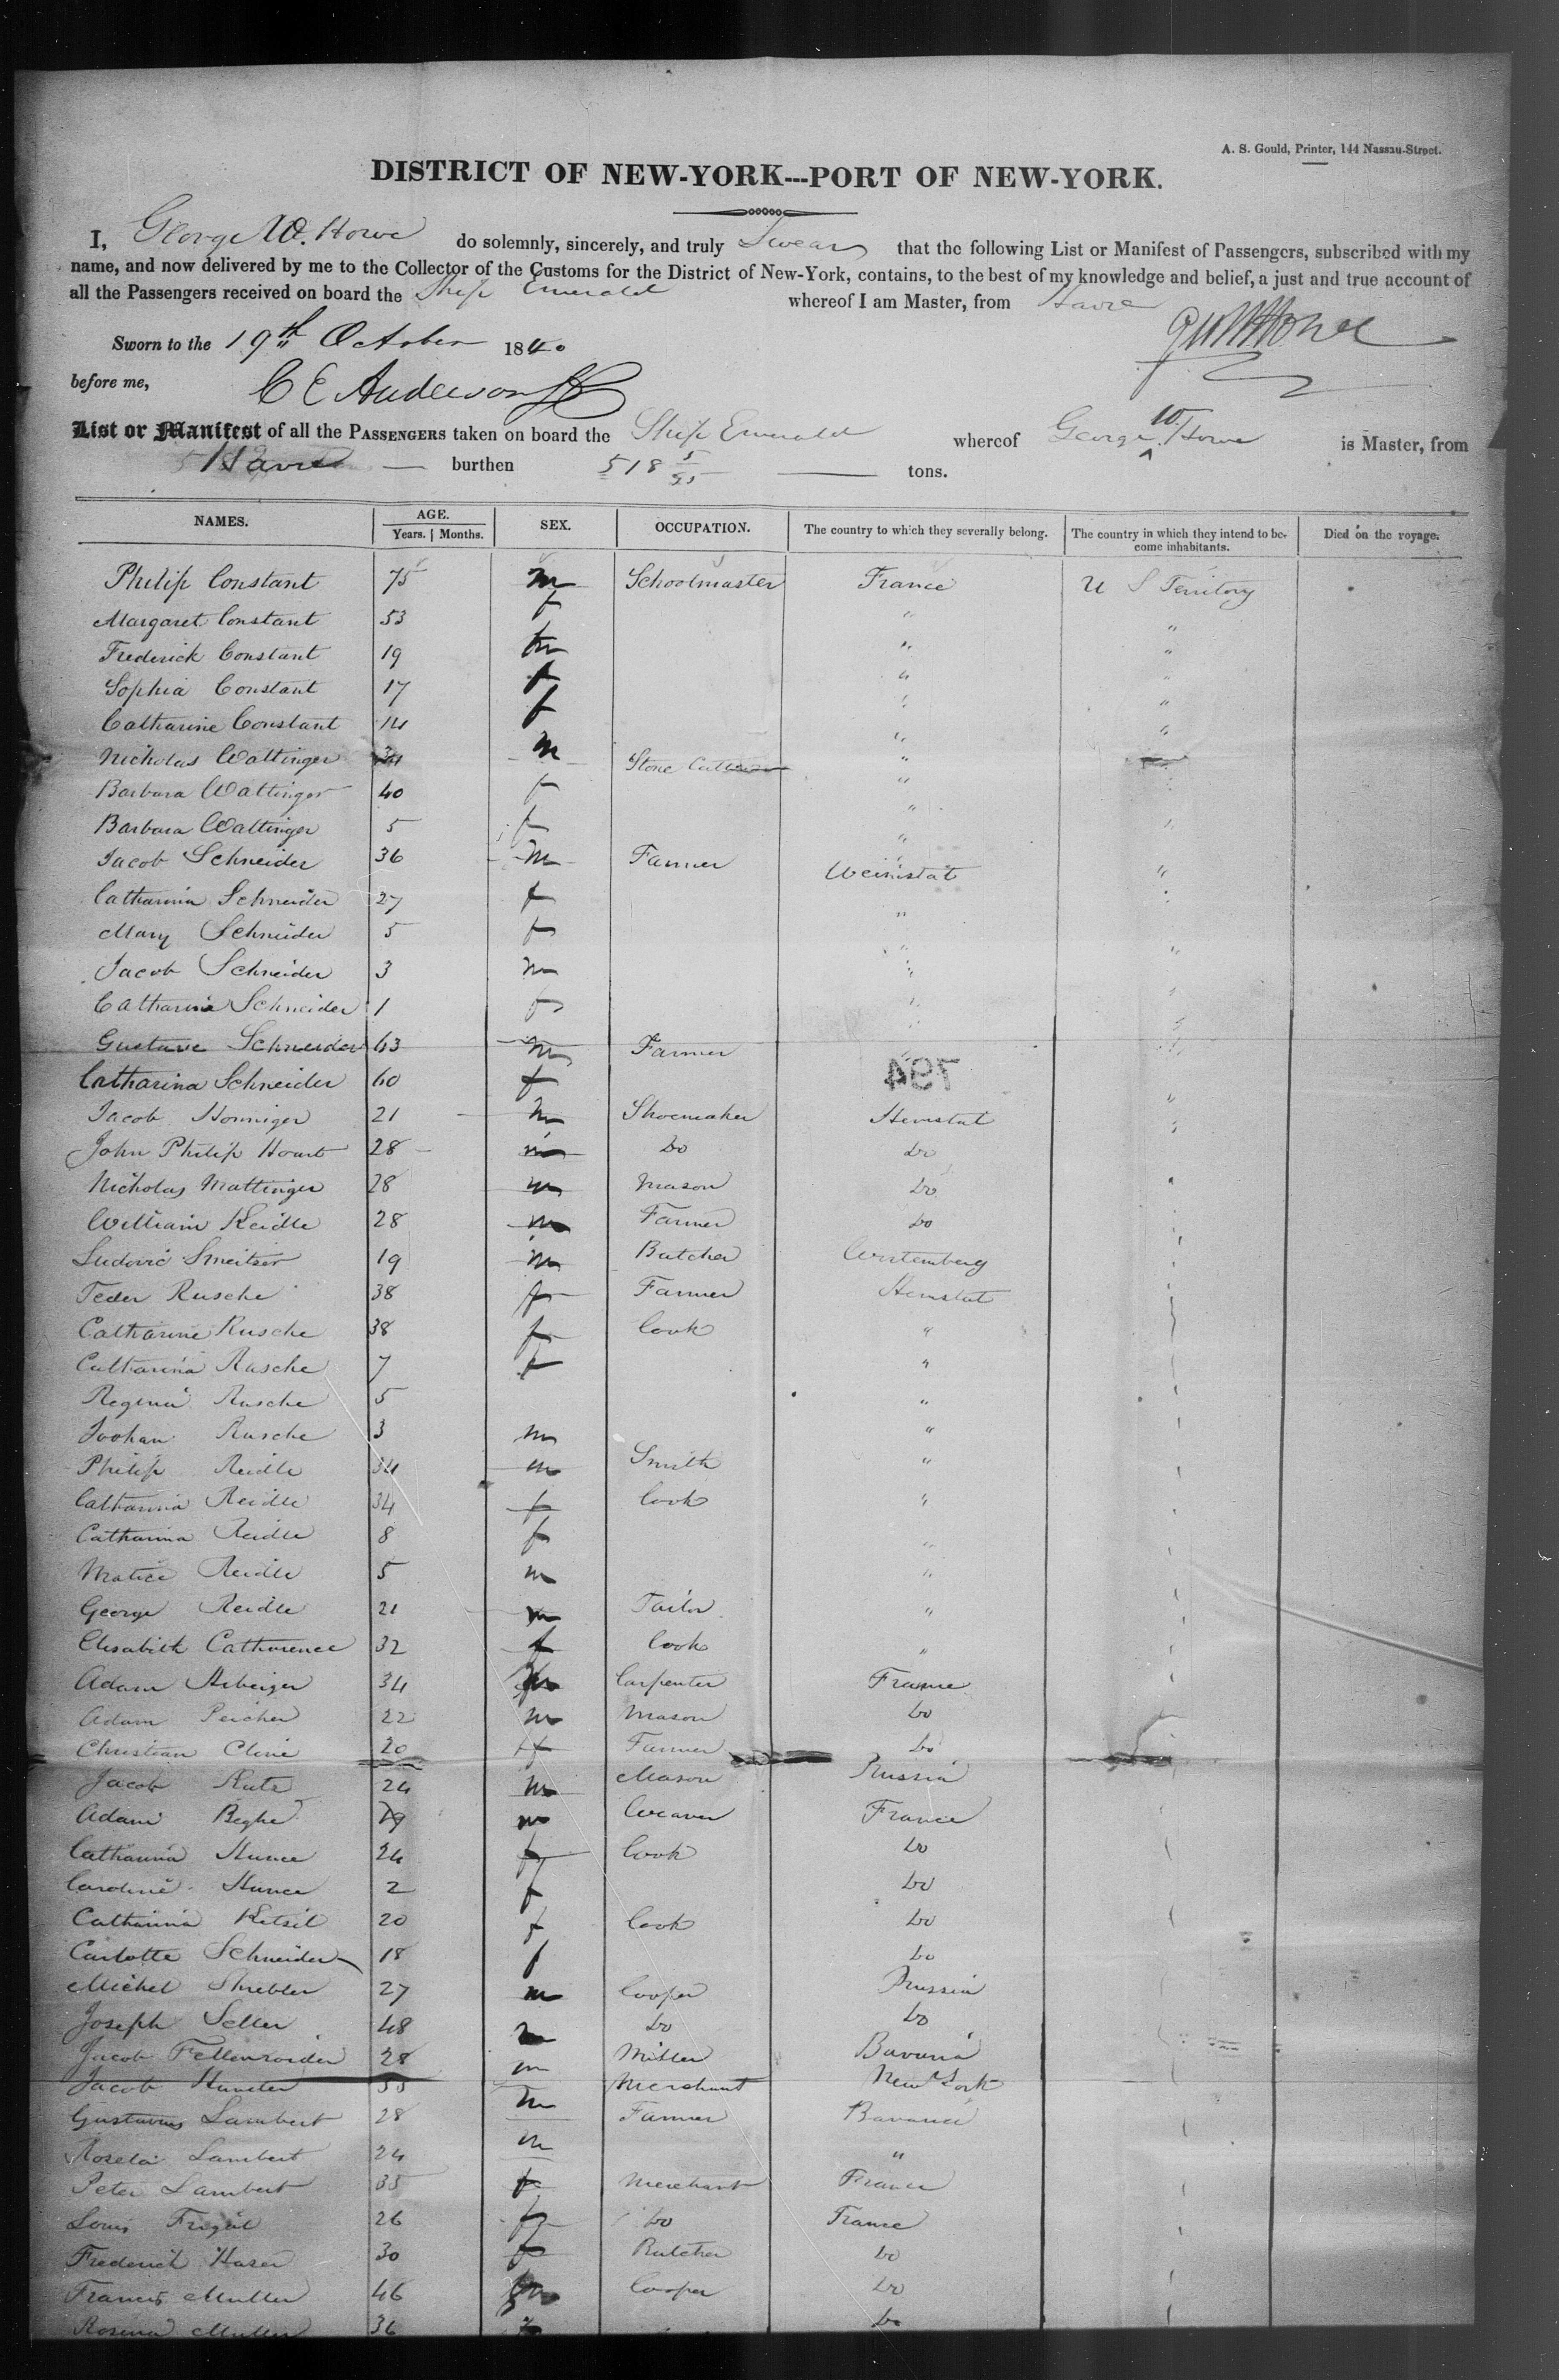 A. S. Gould, Printer, 144 Nassau-Street.
DISTRICT OF NEW-YORK---PORT OF NEW-YORK.
I, George W. Howe do solemnly, sincerely, and truly Swear that the following List or Manifest of Passengers, subscribed with my
name, and now delivered by me to the Collector of the Customs for the District of New-York, contains, to the best of my knowledge and belief, a just and true account of
all the Passengers received on board the Ship Emerald whereof I am Master, from Havre
G W Howe
Sworn to the 19th October 1840
before me, C E Anderson
List or Manifest of all the PASSENGERS taken on board the Ship Emerald whereof George W. Howe is Master, from
Havre burthen 518 5/95 tons.
NAMES. AGE. SEX. OCCUPATION. The country to which they severally belong. The country in which they intend to be- Died on the voyage.
Years. Months. come inhabitants.
Philip Constant 75 m Schoolmaster France U S Territory
Margaret Constant 53 f " "
Frederick Constant 19 m " "
Sophia Constant 17 f " "
Catharine Constant 14 f " "
Nicholas Wattinger 34 m Stone Cutter "
Barbara Wattinger 40 f "
Barbara Wattinger 5 f " "
Jacob Schneider 36 m Farmer "
Catharina Schneider 27 f " "
Mary Schneider 5 f "
Jacob Schneider 3 m " "
Catharina Schneider 1 f " "
Gustave Schneider 63 m Farmer "
794
Catharina Schneider 60 f
Jacob 21 m Shoemaker "
John Philip 28 m Do Do "
Nicholas Mattinger 28 m Mason Do "
William Reidle 28 m Farmer Do
Ludovic 19 m Butcher Wirtemberg
Rusche 38 f Farmer
Catharine Rusche 38 f Cook "
Catharina Rusche 7 f "
Regina Rusche 5 "
Rusche 3 m "
Philip Reidle 34 m Smith "
Catharina Reidle 34 f Cook "
Catharina Reidle 8 f "
Reidle 5 m "
George Reidle 21 m Tailor "
Elisabith Catharence 32 f Cook "
Adam 34 m Carpenter France
Adam 22 m Mason Do
Christian Cline 20 f Farmer Do
Jacob 24 m Mason
Adam Beghe 19 m Weaver France
Catharina 24 f Cook Do
Caroline 2 f Do
Catharina 20 f Cook Do
Carlotte Schneider 18 f Do
Michel 27 m Cooper Prussia
Joseph 48 m Do Do
Jacob 28 m Miller Bavaria
Jacob 35 Merchant New York
Gustavus Lambert 28 m Farmer Bavaria
Lambert 24 m "
Peter Lambert 35 f Merchant France
Louis 26 f Do France
Frederick 30 f Butcher Do
Francis Muller 46 m Cooper Do
Rosina Muller 36 Do